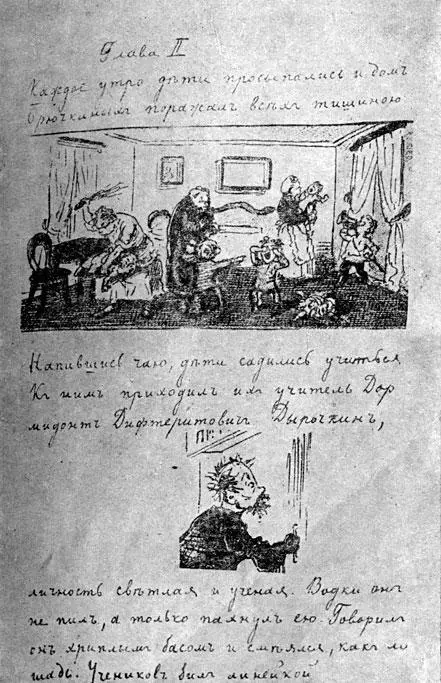 Глава II
Каждое утро дѣти просыпались и домъ
Брючкиныхъ поражалъ всѣхъ тишиною
Напившись чаю, дѣти садились учиться
Къ нимъ приходилъ ихъ учитель Дор
мидонтъ Дифтеритовичъ Дырочкинъ,
личность свѣтлая и ученая. Водки онъ
не пилъ, а только пахнулъ ею. Говорилъ
онъ хриплымъ басомъ и смѣялся, какъ ло
шадь. Учениковъ билъ линейкой